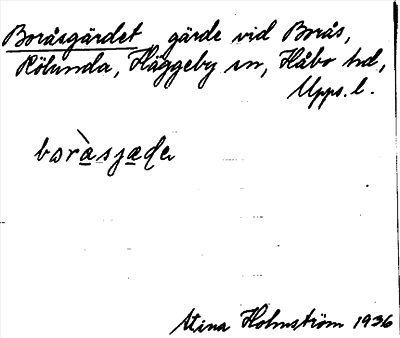 Boråsgärdet gärde vid Borås,
Rölunda, Häggeby sn, Håbo hd,
Upps. l.
boràsjædɐ
Stina Holmström 1936